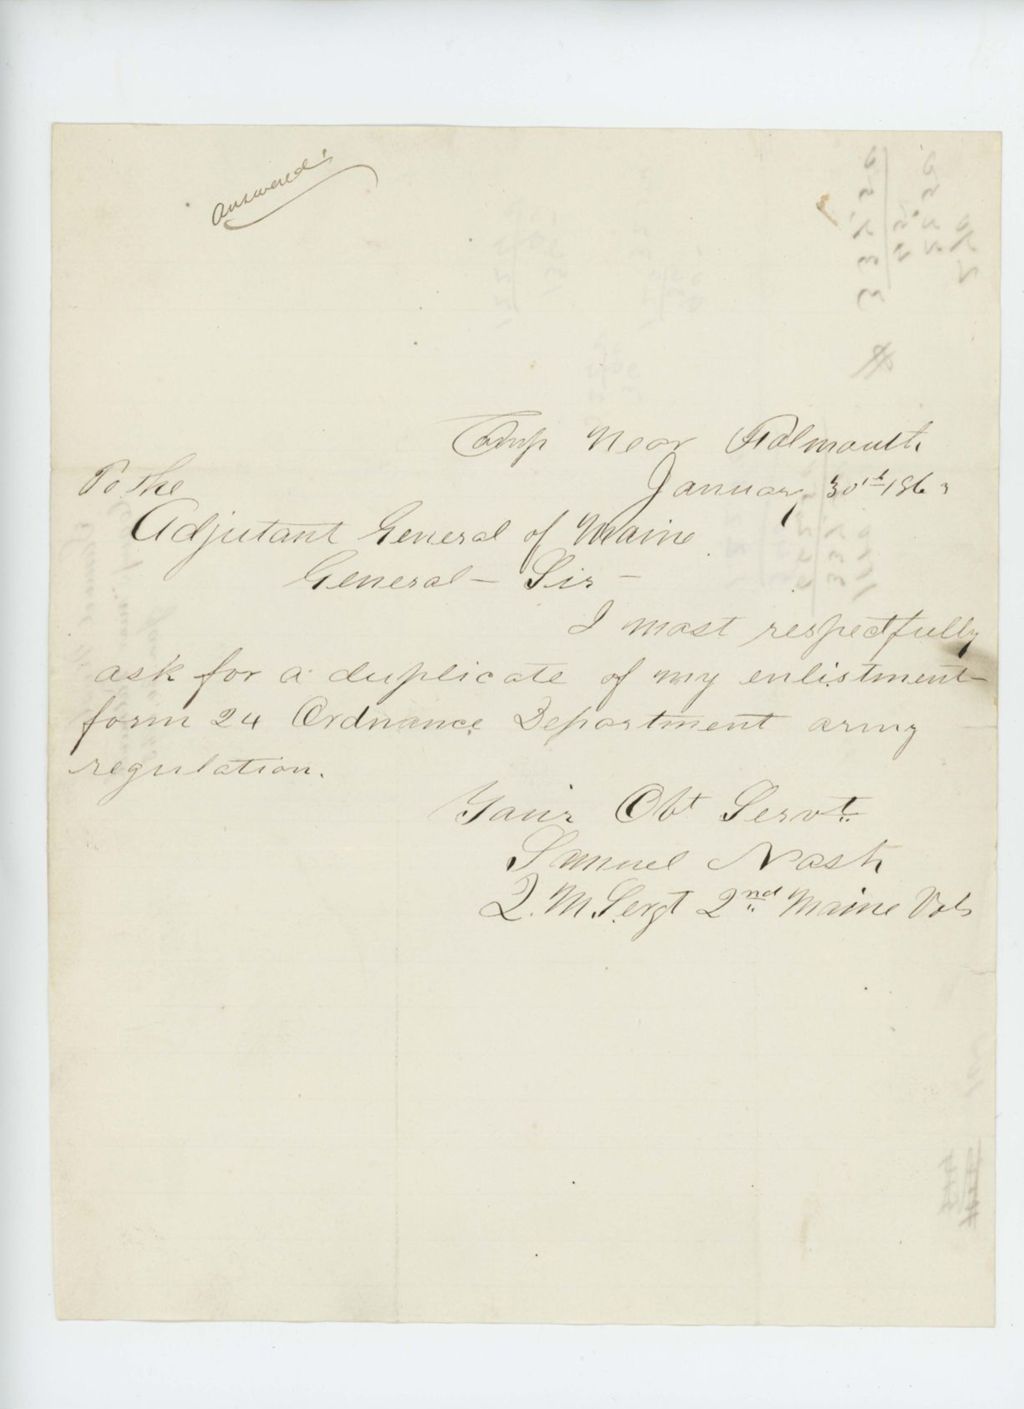 Answered.
Camp Near Falmouth
January 30th 1863
To The
Adjutant General of Maine
General - Sir -
I most respectfully
ask for a duplicate of my enlistment
form 24 Ordnance Department army
regulation.
Your Obt Servt
Samuel Nash
Q.M. Sergt 2nd Maine Vols